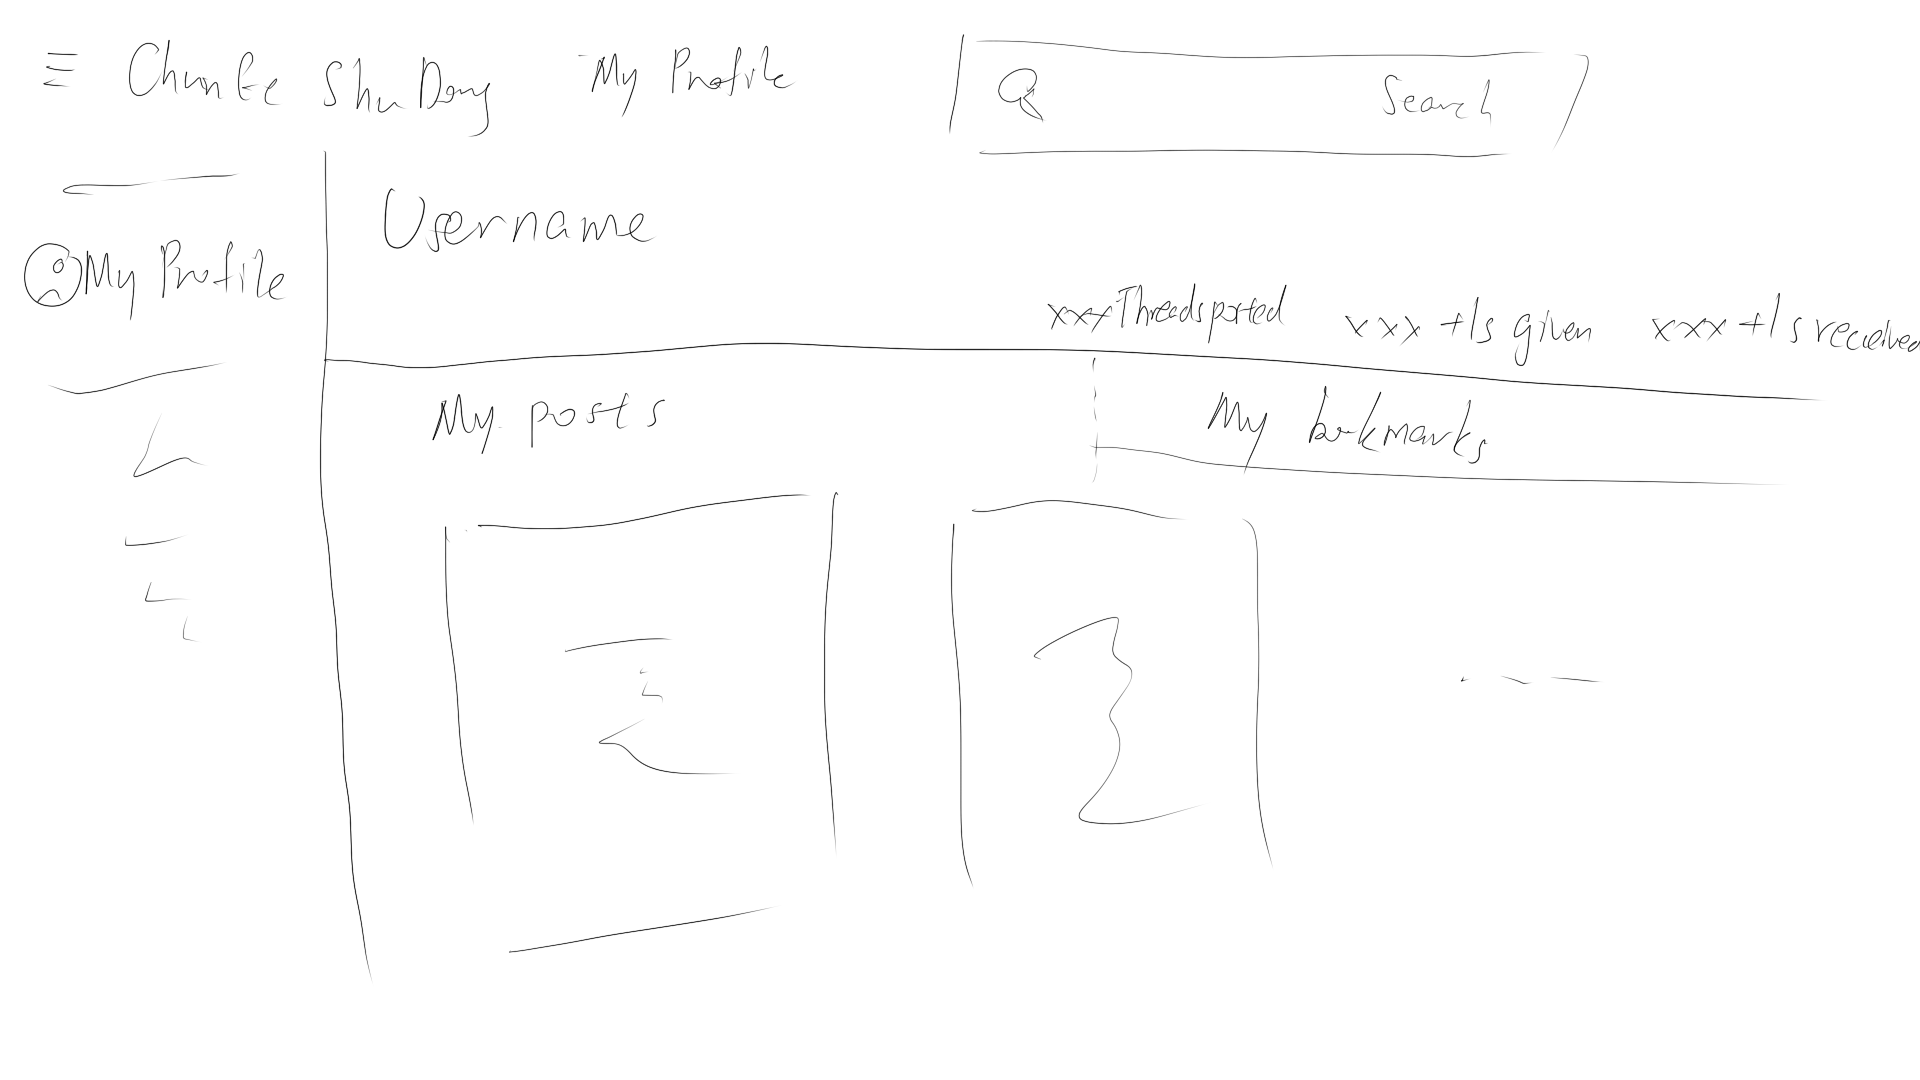 Chunke ShuDong My Profile Search
Username
My Profile
xxx Threads ported xxx +1s given xxx +1s received
My posts My bookmarks